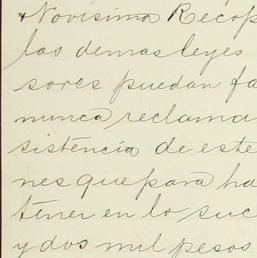 Novísima Recop
las demas leyes
sores puedan fa
nunca reclama
sistencia de este
nes que para ha
tener en lo suc
y dos mil pesos